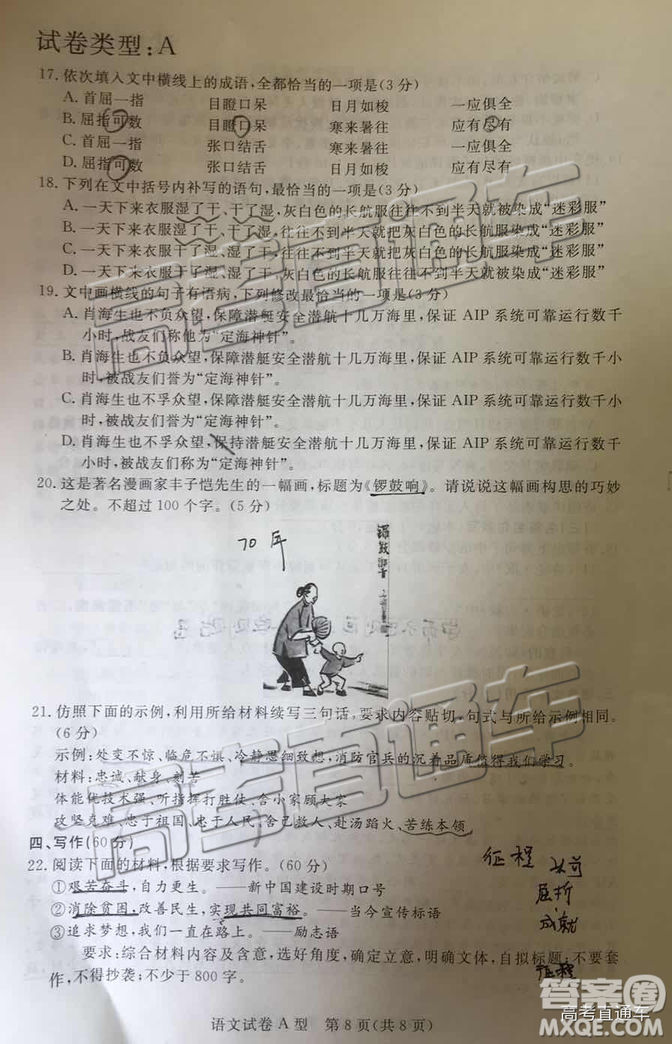 试卷类型：A
17.依次填入文中横线上的成语，全都恰当的一项是（3分）
A.首屈一指 目瞪口呆 日月如梭 一应俱全
B.屈指可数 目瞪口呆 寒来暑往 应有尽有
C.首屈一指 张口结舌 寒来暑往 一应俱全
D.屈指可数 张口结舌 日月如梭 应有尽有
18.下列在文中括号内补写的语句，最恰当的一项是（3分）
A.一天下来衣服湿了干、干了湿，灰白色的长航服往往不到半天就被染成“迷彩服”
B.一天下来衣服湿了干、干了湿，往往不到半天就把灰白色的长航服染成“迷彩服”
C.一天下来衣服干了湿、湿了干，往往不到半天就把灰白色的长航服染成“迷彩服”
D.一天下来衣服干了湿、湿了干，灰白色的长航服往往不到半天就被染成“迷彩服”
19.文中画横线的句子有语病，下列修改最恰当的一项是（3分）
A.肖海生也不负众望，保障潜艇安全潜航十几万海里，保证 AIP 系统可靠运行数千
小时，战友们称他为“定海神针”。
B.肖海生也不负众望，保障潜艇安全潜航十几万海里，保证 AIP 系统可靠运行数千小
时，被战友们誉为“定海神针”。
C.肖海生也不孚众望，保障潜艇安全潜航十几万海里，保证 AIP 系统可靠运行数千小
时，被战友们誉为“定海神针”。
D.肖海生也不孚众望，保持潜艇安全潜航十几万海里，保证 AIP 系统可靠运行数千小
时，被战友们称为“定海神针”。
20.这是著名漫画家丰子恺先生的一幅画，标题为《锣鼓响》。请说说这幅画构思的巧妙
之处。不超过 100 个字。（5分）
70年
锣鼓响
21.仿照下面的示例，利用所给材料续写三句话，要求内容贴切，句式与所给示例相同。
（6分）
示例：处变不惊、临危不惧、冷静思细致想，消防官兵的沉着品质值得我们学习。
材料：忠诚、献身、刻苦
体能优技术强、听指挥打胜仗、舍小家顾大家
攻坚克难、忠于祖国、忠于人民、舍己救人、赴汤蹈火、苦练本领
四、写作（60分）
22.阅读下面的材料，根据要求写作。（60分）
征程
①艰苦奋斗，自力更生。——新中国建设时期口号
屈折
②消除贫困，改善民生，实现共同富裕。——当今宣传标语
成就
③追求梦想，我们一直在路上。——励志语
要求：综合材料内容及含意，选好角度，明确立意，明确文体，自拟标题；不要套
作，不得抄袭；不少于 800 字。
征程
语文试卷 A 型 第 8 页（共 8 页）
高考直通车
答案圈
高考直通车
MXQE.COM